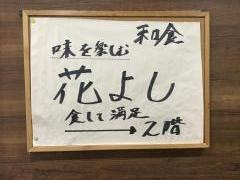 和食
味を楽しむ
花よし
食して満足
2階